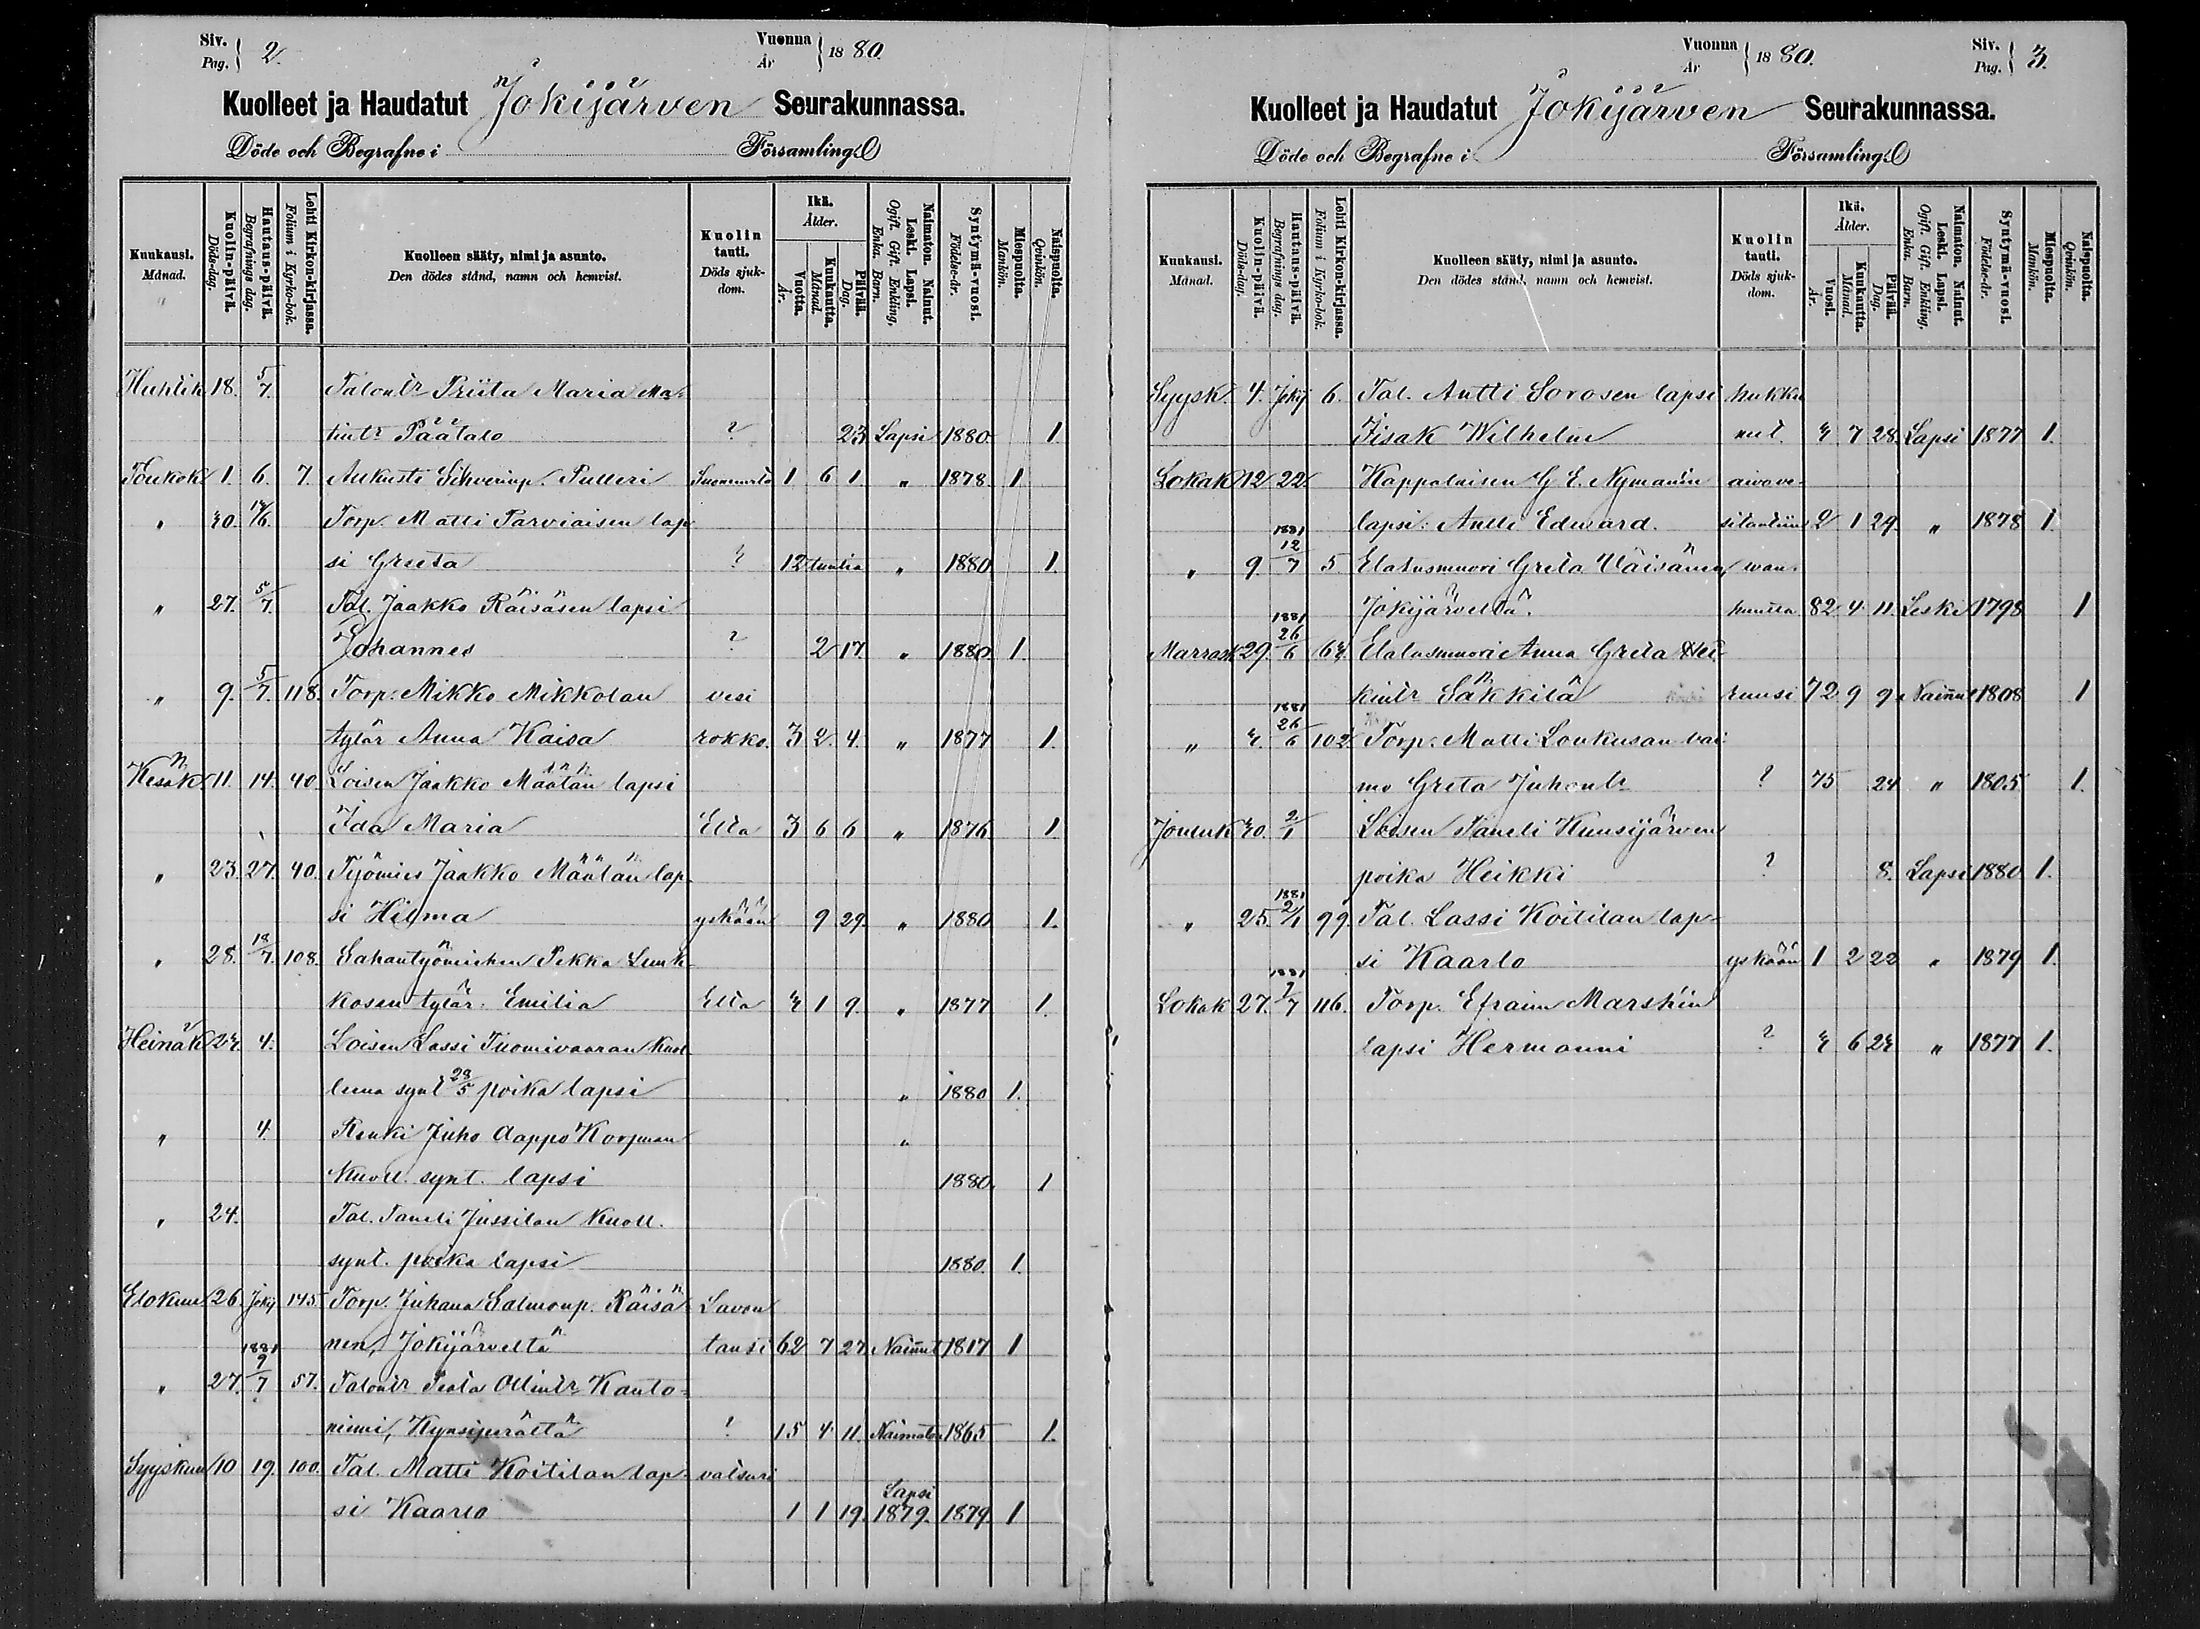 Siv. Pag. 2.
Vuonna År 1880.
Kuolleet ja Haudatut Jokijärven Seurakunnassa.
Döde och Begrafne i Församling.
Kuukausi. Månad.
Kuolin-päivä. Döds-dag.
Hautaus-päivä. Begrafnings dag.
Lehti Kirkon-kirjassa. Folium i Kyrko-bok.
Kuolleen sääty, nimi ja asunto. Den dödes stånd, namn och hemvist.
Kuolin tauti. Döds sjukdom.
Ikä. Ålder.
Vuotta. År.
Kuukautta. Månad.
Päivää. Dag.
Naimaton. Nainut. Leski. Lapsi. Ogift. Gift. Enkling, Enka. Barn.
Syntymä-vuosi. Födelse-år.
Miespuolta. Mankön.
Naispuolta. Qvinkön.
Huhtik 18. 5/7. Talontr Priita Maria Ma-
tintr Päätalo ? 23 Lapsi 1880 1.
Toukok 1. 6. 7. Aukusti Schverinp. Pulleri 1 6 1 „ 1878. 1
„ 30. 14/6. Torp. Matti Parviaisen lap
si Greeta ? 12 tuntia „ 1880 1.
„ 27. 5/7. Tal. Jaakko Räisäsen lapsi
Johannes ? 2 17 „ 1880. 1.
„ 9. 5/7. 118. Torp. Mikko Mikkolan vesi
tytär Anna Kaisa rokko. 3 2. 4. „ 1877 1.
Kesäk 11. 14. 40. Loisen Jaakko Määtän lapsi
Ida Maria Elta 3 6 6 „ 1876 1.
„ 23. 27. 40. Työmies Jaakko Määtän lap
si Hilma yskään 9 29. „ 1880 1.
„ 28. 18/7. 108. Sahantyömiehen Pekka Lunk
kosen tytär: Emilia Elta 3 1 9. „ 1877 1.
Heinäk 23. 4. Loisen Lassi Tuomivaaran Kuol
leena synt 28/5 poika lapsi „ 1880 1.
„ 4. Renki Juho Aappo Korpuan „
Kuoll. synt. lapsi 1880. 1
„ 24. Tal. Taneli Jussilan Kuoll.
synt. poika lapsi 1880. 1.
Elokuu 26. Jokij 145 Torp. Juhana Salmonp. Räisä Lavan
nen, Jokijärveltä tauti 62 7 27. Nainut 1817 1
„ 27. 1881 9/7 57. Talontr Ollintr Kanto-
niemi, Kynsiperältä ? 15 4 11. Naimaton 1865 1.
Syyskuu 10 19. 100. Tal. Matti Koitilan lap- vatsuri
si Kaarlo 1 1 19. Lapsi 1879. 1879. 1
Vuonna År 1880.
Siv. Pag. 3.
Kuolleet ja Haudatut Jokijärven Seurakunnassa.
Döde och Begrafne i Församling.
Kuukausi. Månad.
Kuolin-päivä. Döds-dag.
Hautaus-päivä. Begrafnings dag.
Lehti Kirkon-kirjassa. Folium i Kyrko-bok.
Kuolleen sääty, nimi ja asunto. Den dödes stånd, namn och hemvist.
Kuolin tauti. Döds sjukdom.
Ikä. Ålder.
Vuosi. År.
Kuukautta. Månad.
Päivää. Dag.
Naimaton. Nainut. Leski. Lapsi. Ogift. Gift. Enkling, Enka. Barn.
Syntymä-vuosi. Födelse-år.
Miespuolta. Mankön.
Naispuolta. Qvinkön.
Syysk. 4. Jokij 6. Tal. Antti Sorosen lapsi hukku
Iisak Wilhelm nut. 3 7 28. Lapsi 1877 1.
Lokak 12 22. Kappalaisen G E. Nymanin aivove-
lapsi: Antti Edward. 2 1 29. „ 1878 1.
„ 9. 1881 12/7 5 Elatusmuori Greta Väisänen, wan-
Jokijärveltä. huutta 82 4 11. Leski 1798 1
Marrask 29. 1881 26/6 63. Elatusmuori Anna Greta Hei-
kintr Säkkilä ruusi 72. 9 9. Nainut 1808 1
„ 3. 1881 26/6 102 Torp. Matti Loukusan vai
mo Greta Juhontr ? 75 24 „ 1805 1.
Jouluk 30. 2/1 Loisen Taneli Kuusijärven
poika Heikki ? 8. Lapsi 1880 1.
„ 25. 1881 2/1 99. Tal. Lassi Koitilan lap-
si Kaarlo yskään 1 2 22 „ 1879 1.
Lokak 27. 1881 7/7 116. Torp. Efraim Marskin
lapsi Hermanni ? 3 6 23 „ 1877 1.